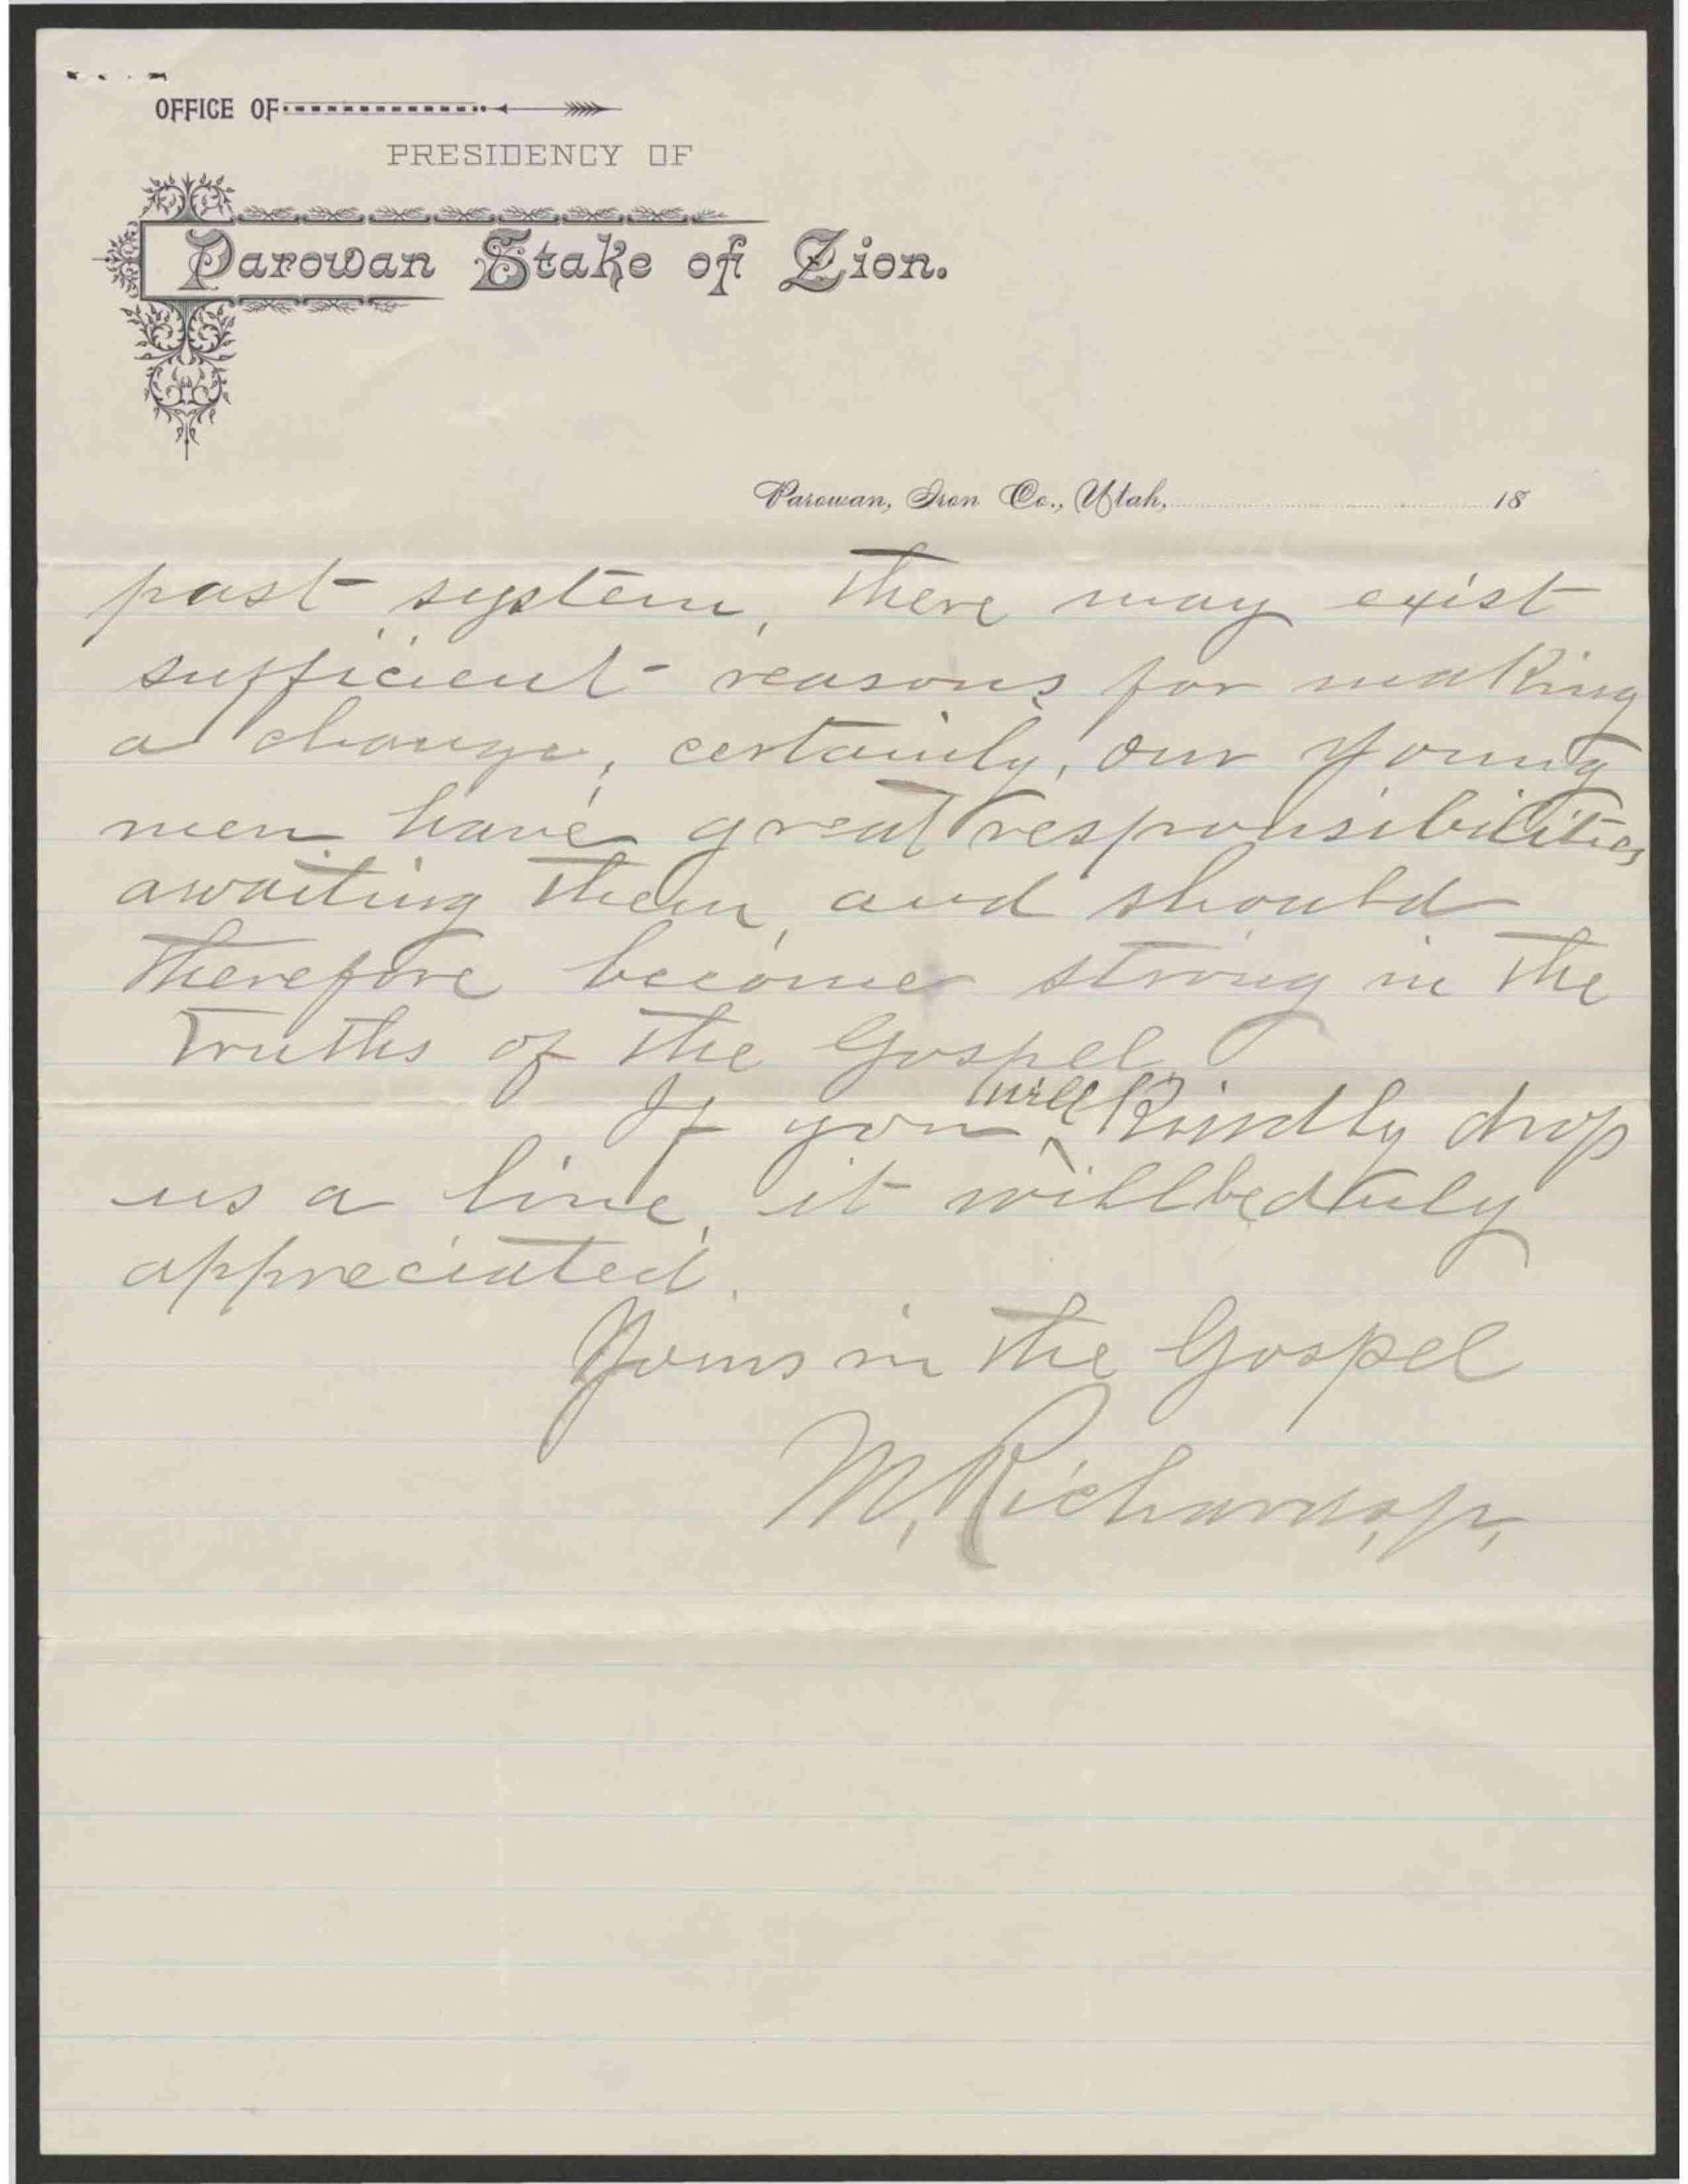 OFFICE OF
PRESIDENCY OF
Parowan Stake of Zion.
Parowan, Iron Co., Utah, 18
past system, there may exist
sufficient reasons for making
a change, certainly, our young
men have great responsibilities
awaiting them, and should
therefore become strong in the
truths of the Gospel.
will
If you ^ kindly drop
us a line, it will be duly
appreciated.
Yours in the Gospel
M, Richards, Jr,